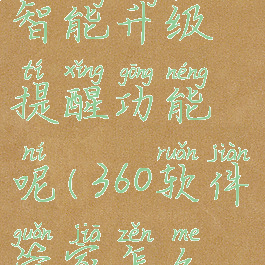 智能升级
tí xǐng gōng néng
提醒功能
ní ruǎn jiàn
呢(360软件
guǎn jiā zěn me